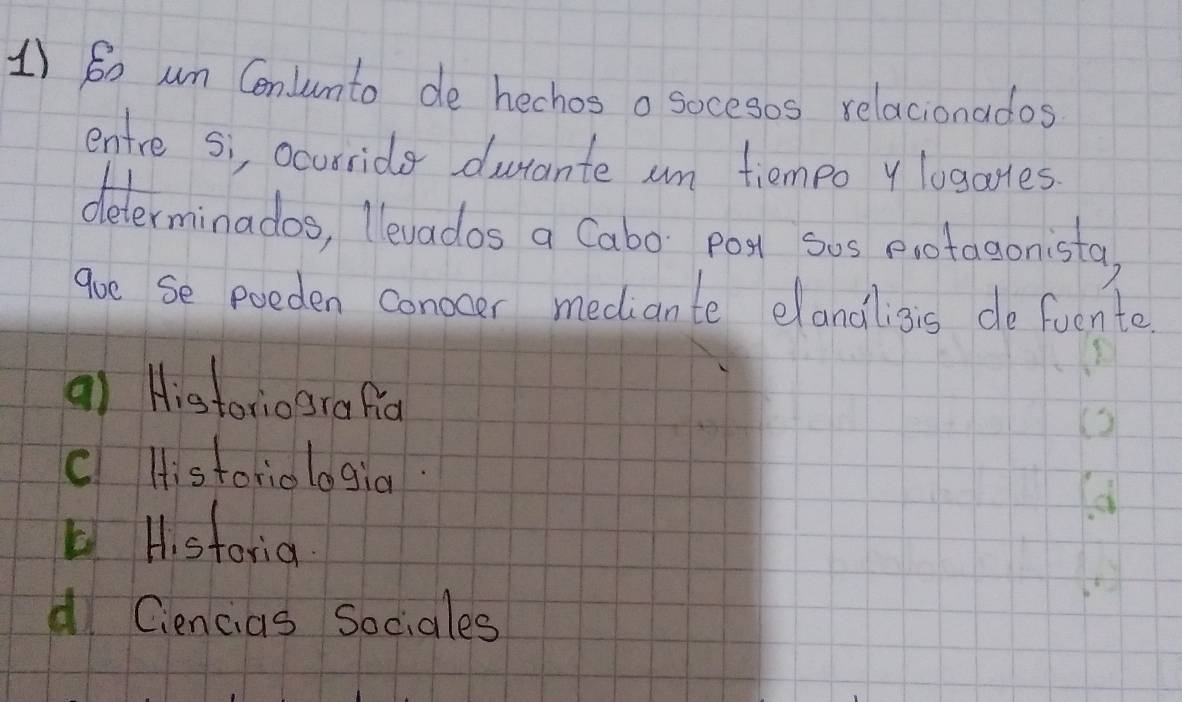 1) Es un Conlunto de hechos o socesos relacionados
entre si, ocurrido durante un tiempo y lugares.
determinados, llevados a Cabo por sus protagonista,
que se pueden conocer mediante el análisis de fuente.
a) Historiografía
c) Historiologia.
b Historia.
d) Ciencias Sociales